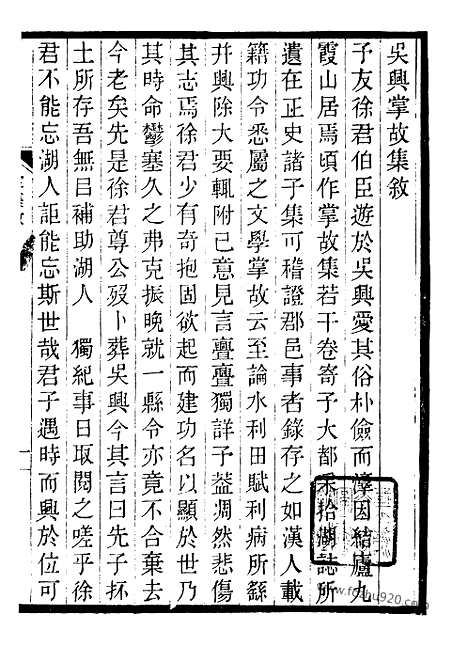 吳興掌故集敘
予友徐君伯臣遊於吳興愛其俗朴儉而淳因結廬九
霞山居焉頃作掌故集若干卷寄予大都采拾湖誌所
遺在正史諸子集可稽證郡邑事者錄存之如漢人載
籍功令悉屬之文學掌故云至論水利田賦利病所繇
井興除大要輒附己意見言亹亹獨詳予益凋然悲傷
其志焉徐君少有奇抱固欲起而建功名以顯於世乃
其時命鬱塞久之弗克振晚就一縣令亦竟不合棄去
今老矣先是徐君尊公歿卜葬吳興今其言曰先子抔
土所存吾無㠯補助湖人 獨紀事日取閱之嗟乎徐
君不能忘湖人詎能忘斯世哉君子遇時而興於位可
www.fozhu920.com